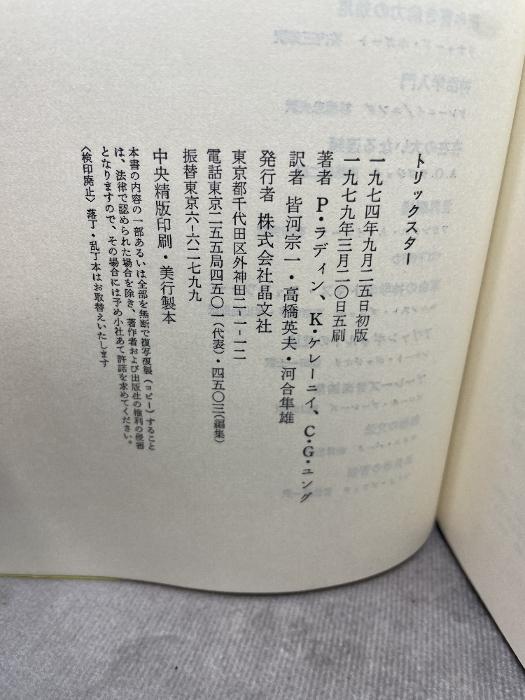 トリックスター
一九七四年九月二五日初版
一九七九年三月二〇日五刷
著者 P・ラディン、K・ケレーニイ、C・G・ユング
訳者 皆河宗一・高橋英夫・河合隼雄
発行者 株式会社晶文社
東京都千代田区外神田二-一-一二
電話東京二五五局四五〇一(代表)・四五〇三(編集)
振替東京六-六二七九九
中央精版印刷・美行製本
本書の内容の一部あるいは全部を無断で複写複製(コピー)すること
は、法律で認められた場合を除き、著作者および出版社の権利の侵害
となりますので、その場合には予め小社あて許諾を求めてください。
〈検印廃止〉落丁・乱丁本はお取替えいたします